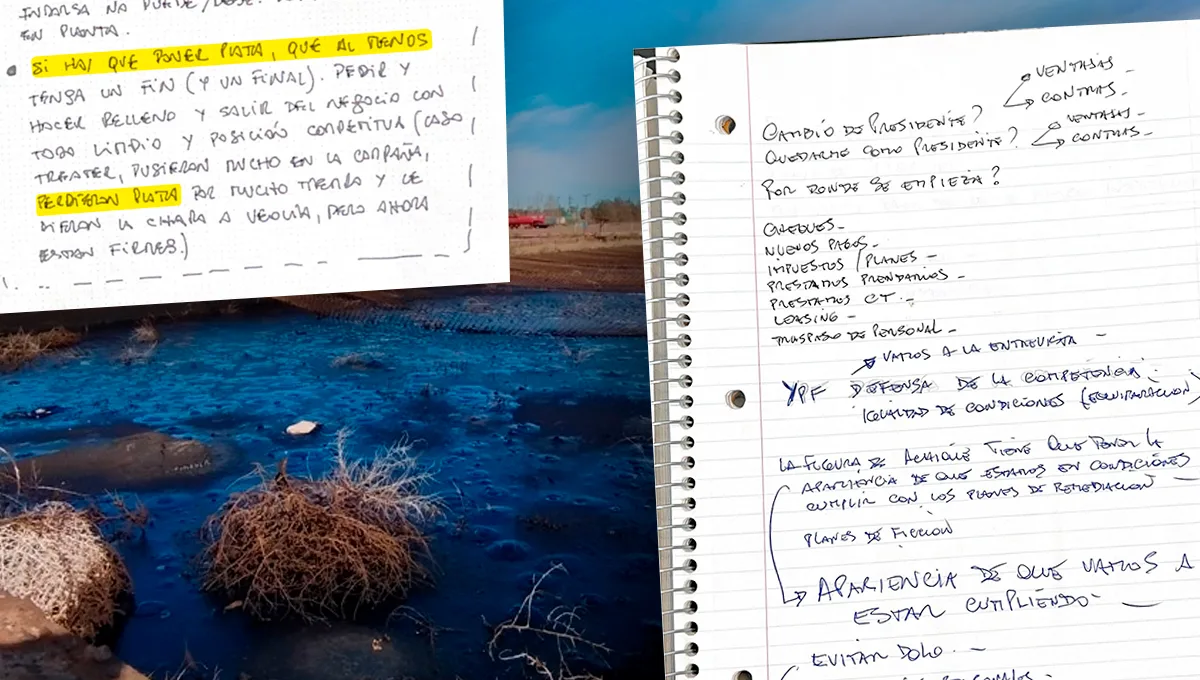 INDARSA NO PUEDE/DEBE.
EN PLANTA.
SI HAY QUE PONER PLATA, QUE AL MENOS
TENGA UN FIN (Y UN FINAL). PEDIR Y
HACER RELLENO Y SALIR DEL NEGOCIO CON
TODO LIMPIO Y POSICIÓN COMPETITIVA (CASO
TREATER, PUSIERON MUCHO EN LA CAMPAÑA,
PERDIERON PLATA POR MUCHO TIEMPO Y LE
DIERON LA CHARA A VEOLIA, PERO AHORA
ESTAN FIRMES.)
VENTAJAS -
CONTRAS -
CAMBIO DE PRESIDENTE?
VENTAJAS -
QUEDARME COMO PRESIDENTE?
CONTRAS -
POR DONDE SE EMPIEZA?
CHEQUES -
NUEVOS PAGOS -
IMPUESTOS / PLANES -
PRESTAMOS PRENDARIOS -
PRESTAMOS CT. -
LEASING -
TRASPASO DE PERSONAL -
VAMOS A LA ENTREVISTA -
YPF DEFENSA DE LA COMPETENCIA.
IGUALDAD DE CONDICIONES (EQUIPARACION)
LA FIGURA DE TIENE QUE TENER LA
APARIENCIA DE QUE ESTAMOS EN CONDICIONES
CUMPLIR CON LOS PLANES DE REMEDIACION -
PLANES DE FICCION
APARIENCIA DE QUE VAMOS A
ESTAR CUMPLIENDO -
EVITAR DOLO. -